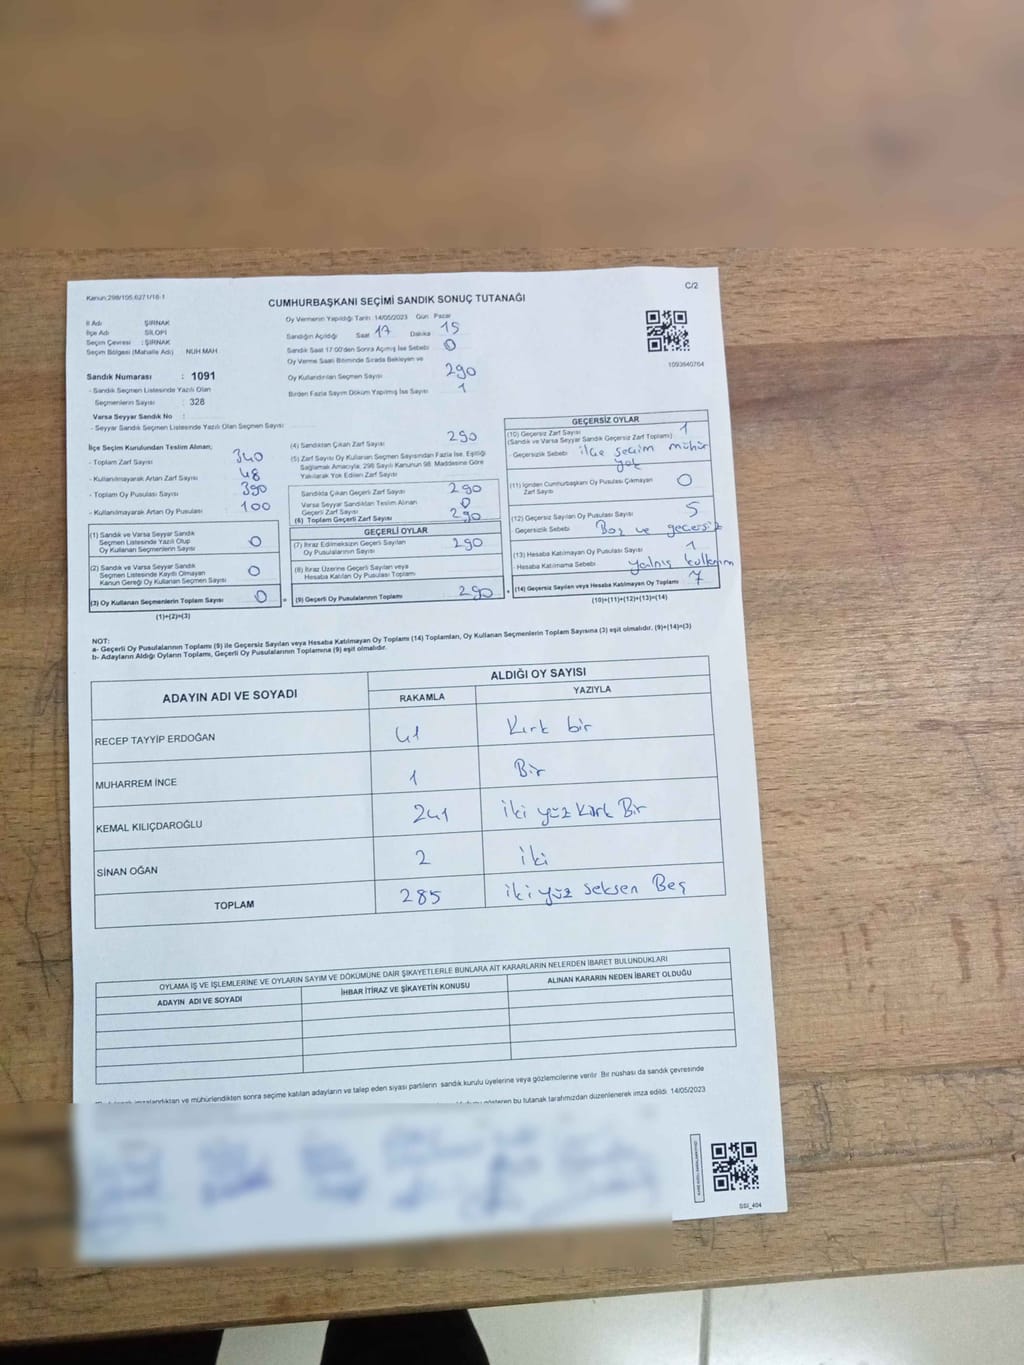 Kanun:298/105,6271/16-1
C/2
CUMHURBAŞKANI SEÇİMİ SANDIK SONUÇ TUTANAĞI
İl Adı ŞIRNAK
İlçe Adı SİLOPİ
Seçim Çevresi : ŞIRNAK
Seçim Bölgesi (Mahalle Adı) NUH MAH
Sandık Numarası : 1091
- Sandık Seçmen Listesinde Yazılı Olan
Seçmenlerin Sayısı : 328
Varsa Seyyar Sandık No :
- Seyyar Sandık Seçmen Listesinde Yazılı Olan Seçmen Sayısı
Oy Vermenin Yapıldığı Tarih 14/05/2023 Gün Pazar
Sandığın Açıldığı Saat 17 Dakika 15
Sandık Saat 17.00'den Sonra Açımış İse Sebebi 0
Oy Verme Saati Bitiminde Sırada Bekleyen ve
Oy Kullandırılan Seçmen Sayısı 290
Birden Fazla Sayım Döküm Yapılmış İse Sayısı 1
1093640764
İlçe Seçim Kurulundan Teslim Alınan;
- Toplam Zarf Sayısı 340
- Kullanılmayarak Artan Zarf Sayısı 48
- Toplam Oy Pusulası Sayısı 390
- Kullanılmayarak Artan Oy Pusulası 100
(1) Sandık ve Varsa Seyyar Sandık
Seçmen Listesinde Yazılı Olup
Oy Kullanan Seçmenlerin Sayısı 0
(2) Sandık ve Varsa Seyyar Sandık
Seçmen Listesinde Kayıtlı Olmayan
Kanun Gereği Oy Kullanan Seçmen Sayısı 0
(3) Oy Kullanan Seçmenlerin Toplam Sayısı 0
(1)+(2)=(3)
(4) Sandıktan Çıkan Zarf Sayısı 290
(5) Zarf Sayısı Oy Kullanan Seçmen Sayısından Fazla İse, Eşitliği
Sağlamak Amacıyla, 298 Sayılı Kanunun 98. Maddesine Göre
Yakılarak Yok Edilen Zarf Sayısı
Sandıkta Çıkan Geçerli Zarf Sayısı 290
Varsa Seyyar Sandıktan Teslim Alınan
Geçerli Zarf Sayısı 0
(6) Toplam Geçerli Zarf Sayısı 290
GEÇERLİ OYLAR
(7) İtiraz Edilmeksizin Geçerli Sayılan
Oy Pusulalarının Sayısı 290
(8) İtiraz Üzerine Geçerli Sayılan veya
Hesaba Katılan Oy Pusulası Toplamı
= (9) Geçerli Oy Pusulalarının Toplamı 290
GEÇERSİZ OYLAR
(10) Geçersiz Zarf Sayısı 1
(Sandık ve Varsa Seyyar Sandık Geçersiz Zarf Toplamı)
- Geçersizlik Sebebi ilçe seçim mühür
yok
(11) İçinden Cumhurbaşkanı Oy Pusulası Çıkmayan
Zarf Sayısı 0
(12) Geçersiz Sayılan Oy Pusulası Sayısı 5
Geçersizlik Sebebi Boş ve geçersiz
(13) Hesaba Katılmayan Oy Pusulası Sayısı 1
- Hesaba Katılmama Sebebi yalnış kullanım
+ (14) Geçersiz Sayılan veya Hesaba Katılmayan Oy Toplamı 7
(10)+(11)+(12)+(13)=(14)
NOT:
a- Geçerli Oy Pusulalarının Toplamı (9) ile Geçersiz Sayılan veya Hesaba Katılmayan Oy Toplamı (14) Toplamları, Oy Kullanan Seçmenlerin Toplam Sayısına (3) eşit olmalıdır. (9)+(14)=(3)
b- Adayların Aldığı Oyların Toplamı, Geçerli Oy Pusulalarının Toplamına (9) eşit olmalıdır.
ADAYIN ADI VE SOYADI
ALDIĞI OY SAYISI
RAKAMLA YAZIYLA
RECEP TAYYİP ERDOĞAN 41 Kırk bir
MUHARREM İNCE 1 Bir
KEMAL KILIÇDAROĞLU 241 iki yüz kırk Bir
SİNAN OĞAN 2 iki
TOPLAM 285 iki yüz seksen Beş
OYLAMA İŞ VE İŞLEMLERİNE VE OYLARIN SAYIM VE DÖKÜMÜNE DAİR ŞİKAYETLERLE BUNLARA AİT KARARLARIN NELERDEN İBARET BULUNDUKLARI
ADAYIN ADI VE SOYADI İHBAR İTİRAZ VE ŞİKAYETİN KONUSU ALINAN KARARIN NEDEN İBARET OLDUĞU
imzalandıktan ve mühürlendikten sonra seçime katılan adayların ve talep eden siyasi partilerin sandık kurulu üyelerine veya gözlemcilerine verilir. Bir nüshası da sandık çevresinde
gösteren bu tutanak tarafımızdan düzenlenerek imza edildi. 14/05/2023
SSI_404